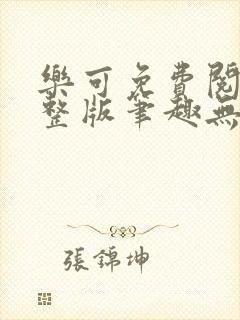 樂可免費閱
整版筆趣無
張錦坤